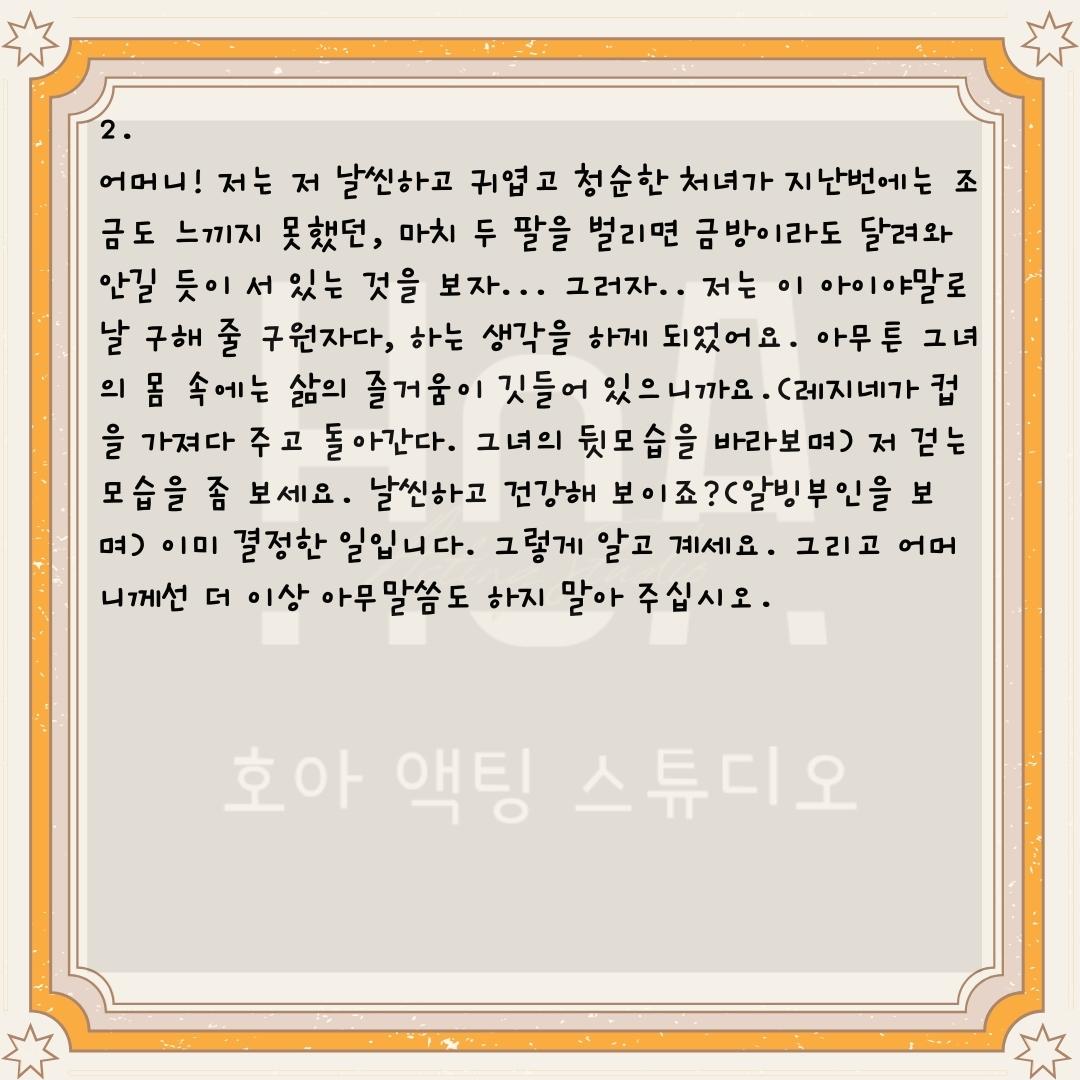 2.
어머니! 저는 저 날씬하고 귀엽고 청순한 처녀가 지난번에는 조
금도 느끼지 못했던, 마치 두 팔을 벌리면 금방이라도 달려와
안길 듯이 서 있는 것을 보자... 그러자.. 저는 이 아이야말로
날 구해 줄 구원자다, 하는 생각을 하게 되었어요. 아무튼 그녀
의 몸 속에는 삶의 즐거움이 깃들어 있으니까요.(레지네가 컵
을 가져다 주고 돌아간다. 그녀의 뒷모습을 바라보며) 저 걷는
모습을 좀 보세요. 날씬하고 건강해 보이죠?(알빙부인을 보
며) 이미 결정한 일입니다. 그렇게 알고 계세요. 그리고 어머
니께선 더 이상 아무말씀도 하지 말아 주십시오.
HoA
호아 액팅 스튜디오